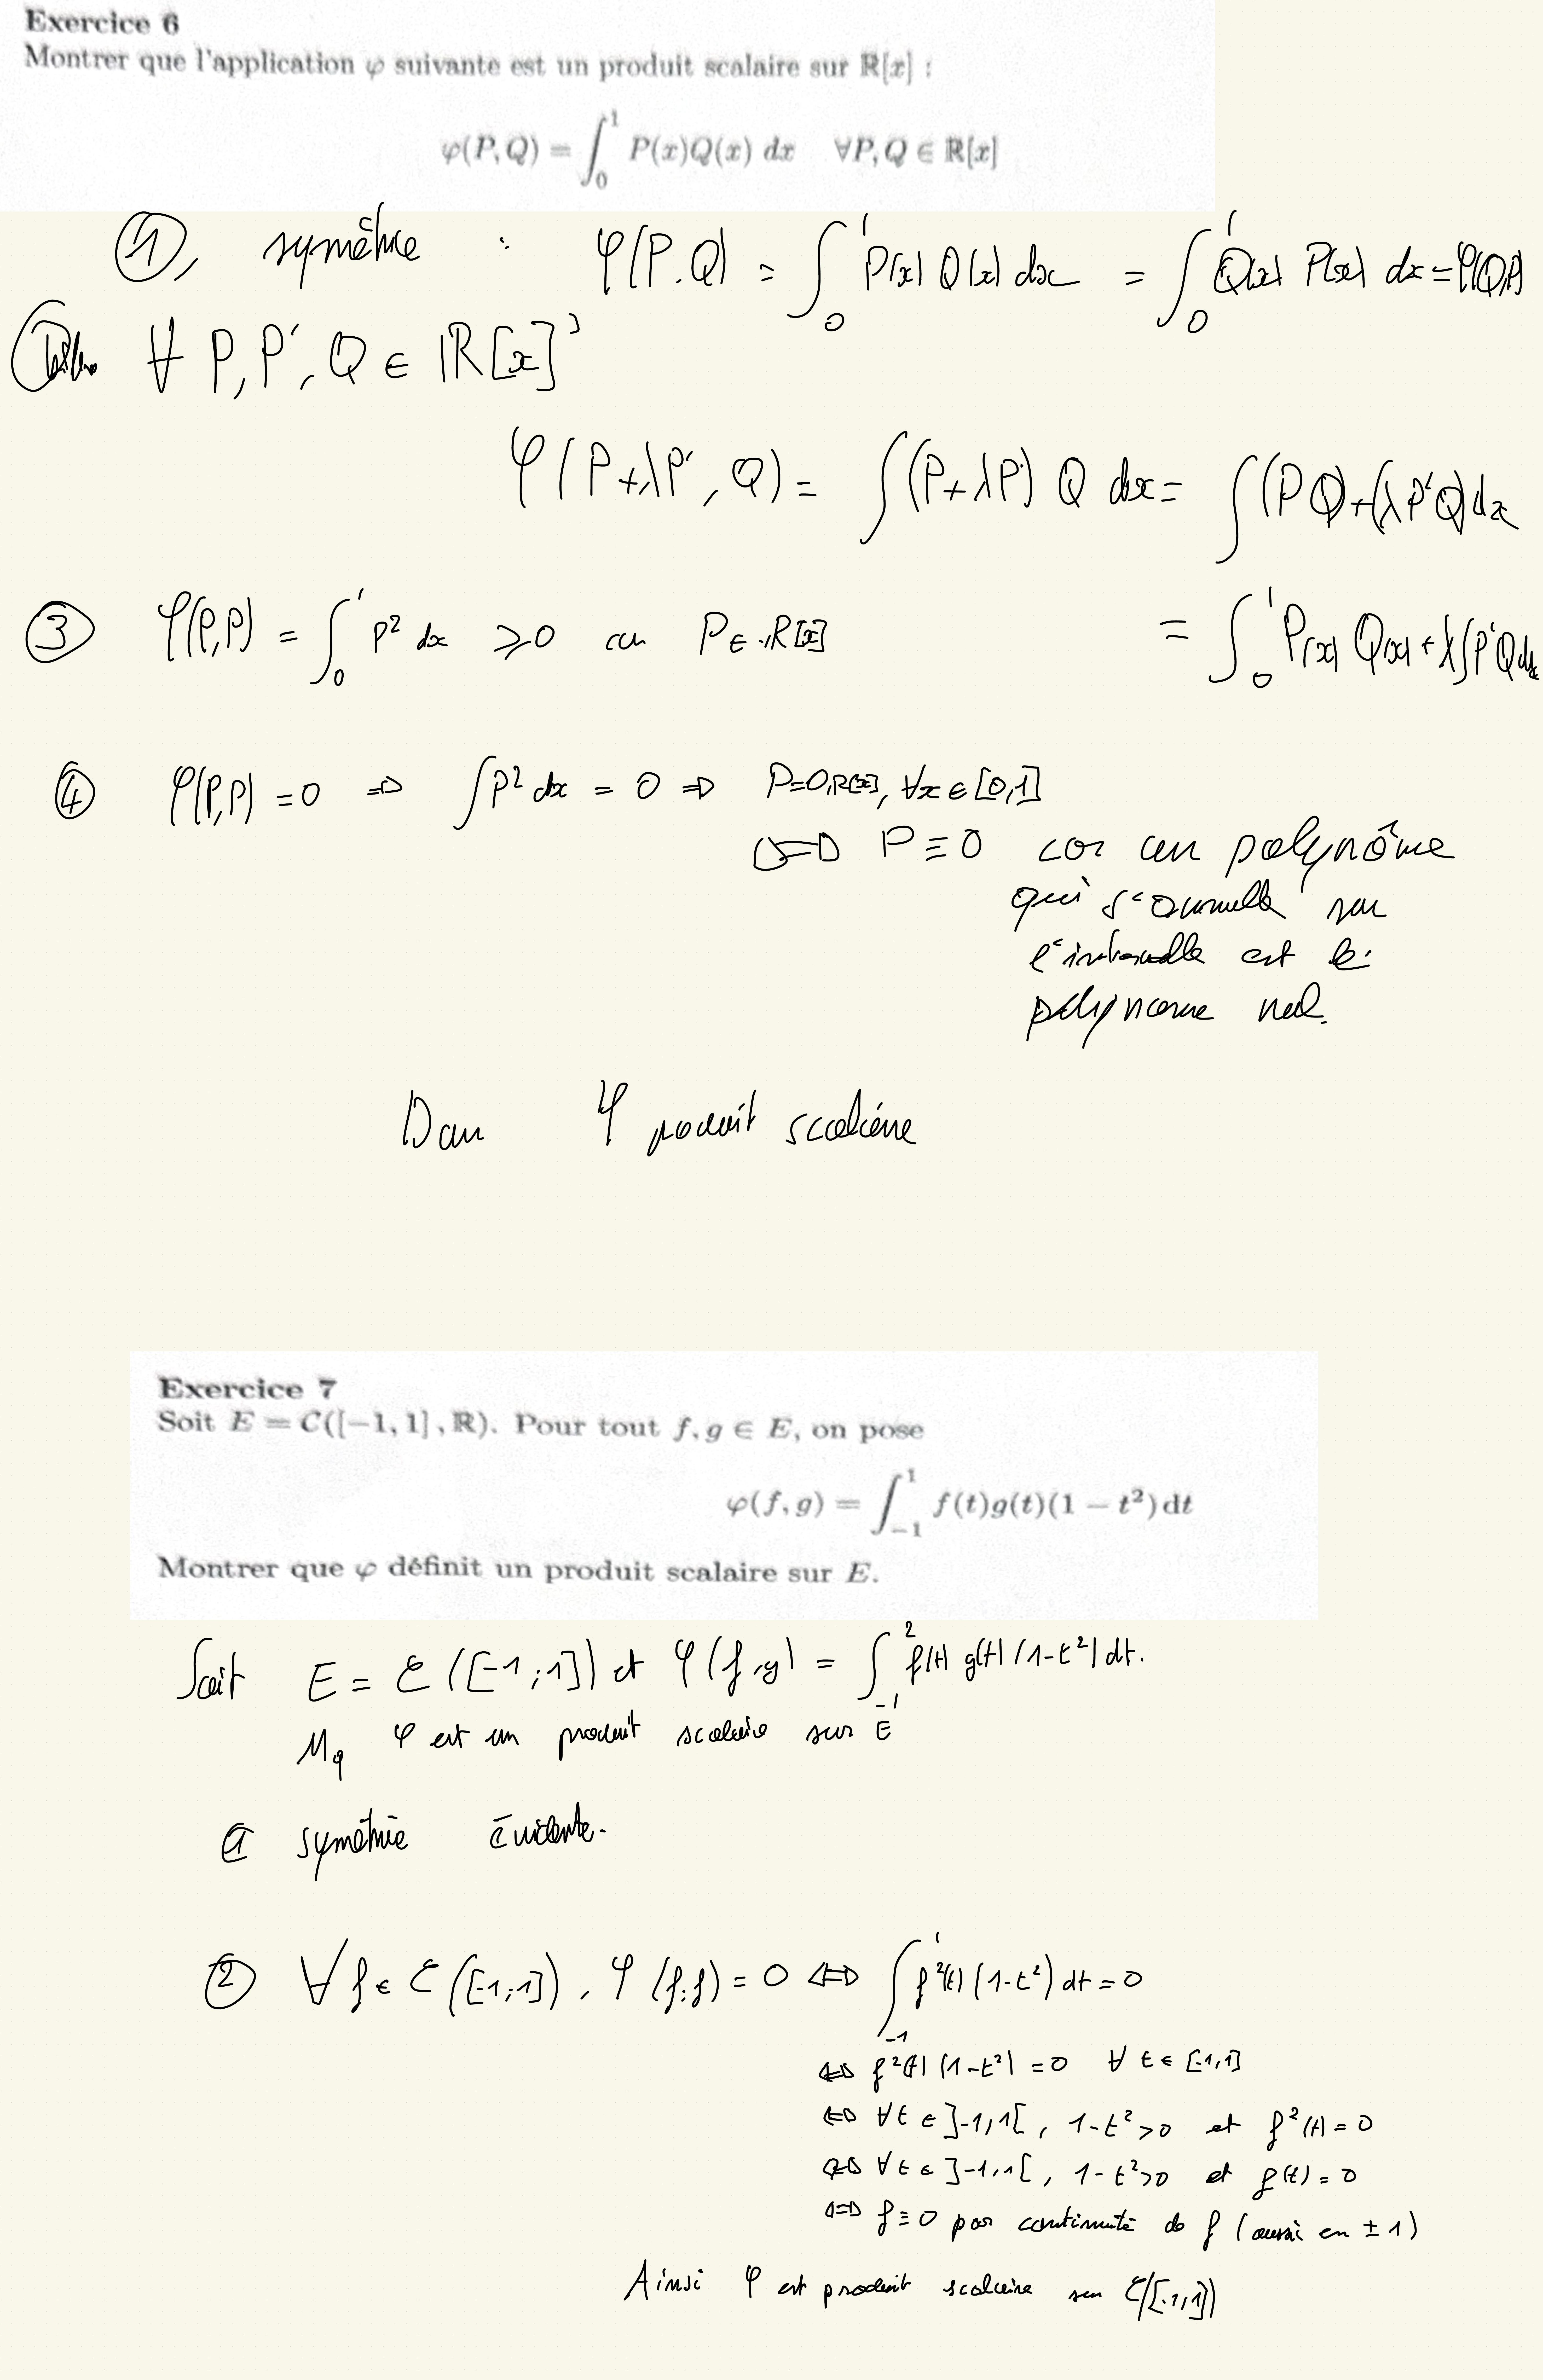 Exercice 6
Montrer que l'application φ suivante est un produit scalaire sur ℝ[x] :
φ(P, Q) = ∫₀¹ P(x)Q(x) dx ∀P, Q ∈ ℝ[x]
①, symétrie : φ(P.Q) = ∫₀¹ P(x) Q(x) dx = ∫₀¹ Q(x) P(x) dx = φ(Q,P)
∀ P, P', Q ∈ ℝ[x]³
φ(P+λP', Q) = ∫(P+λP') Q dx = ∫(PQ)+(λP'Q)dx
③ φ(P,P) = ∫₀¹ P² dx ⩾ 0 car P ∈ ℝ[x]
= ∫₀¹ P(x) Q(x) + λ∫P'Q dx
④ φ(P,P) = 0 ⇒ ∫P² dx = 0 ⇒ P=0ℝ[x], ∀x ∈ [0,1]
⇔ P ≡ 0 car un polynôme
qui s'annulle sur
l'intervalle est le
polynome nul.
Donc φ produit scalaire
Exercice 7
Soit E = C([−1, 1], ℝ). Pour tout f, g ∈ E, on pose
φ(f, g) = ∫₋₁¹ f(t)g(t)(1 − t²) dt
Montrer que φ définit un produit scalaire sur E.
Soit E = C([-1;1]) et φ(f,g) = ∫₋₁² f(t) g(t) (1-t²) dt.
Mq φ est un produit scalaire sur E
① symétrie évidente.
② ∀ f ∈ C([-1;1]), φ(f,f) = 0 ⇔ ∫₋₁¹ f²(t) (1-t²) dt = 0
⇔ f²(t) (1-t²) = 0 ∀ t ∈ [-1,1]
⇔ ∀t ∈ ]-1,1[, 1-t² > 0 et f²(t) = 0
⇔ ∀t ∈ ]-1,1[, 1-t² > 0 et f(t) = 0
⇔ f ≡ 0 par continuité de f (aussi en ± 1)
Ainsi φ est produit scalaire sur C([-1,1])